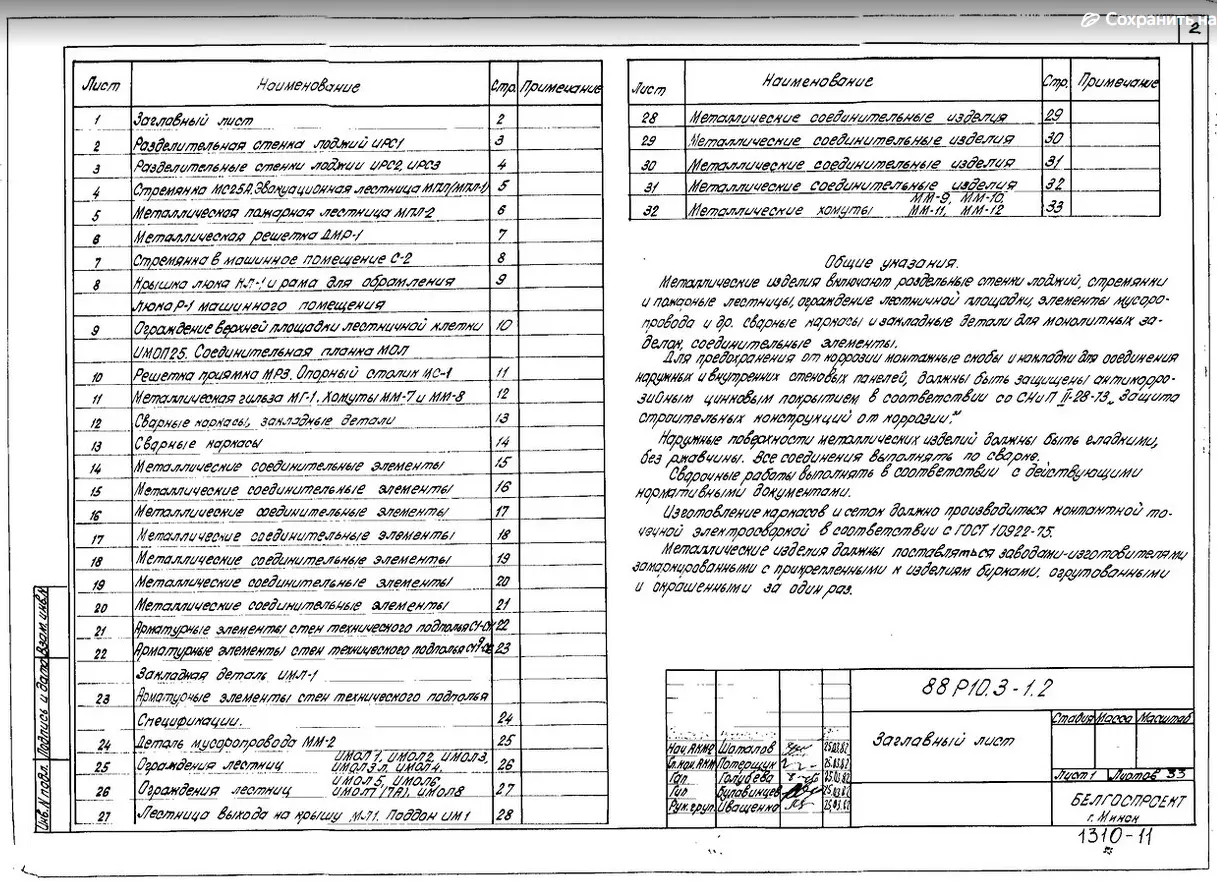 Сохранить на
2
Лист Наименование Стр. Примечание
1 Заглавный лист 2
2 Разделительная стенка лоджий ИРС1 3
3 Разделительные стенки лоджии ИРС2, ИРС3 4
4 Стремянка МС25А, Эвакуационная лестница МПЛ/МПЛ-1/ 5
5 Металлическая пожарная лестница МПЛ-2 6
6 Металлическая решетка ДМР-1 7
7 Стремянка в машинное помещение С-2 8
8 Крышка люка КЛ-1 и рама для обрамления 9
люка Р-1 машинного помещения
9 Ограждение верхней площадки лестничной клетки 10
ИМОП25. Соединительная планка МОЛ
10 Решетка приямка МР3. Опорный столик МС-1 11
11 Металлическая гильза МГ-1. Хомуты ММ-7 и ММ-8 12
12 Сварные каркасы, закладные детали 13
13 Сварные каркасы 14
14 Металлические соединительные элементы 15
15 Металлические соединительные элементы 16
16 Металлические соединительные элементы 17
17 Металлические соединительные элементы 18
18 Металлические соединительные элементы 19
19 Металлические соединительные элементы 20
20 Металлические соединительные элементы 21
21 Арматурные элементы стен технического подполья 22
22 Арматурные элементы стен технического подполья 23
Закладная деталь ИМЛ-1
23 Арматурные элементы стен технического подполья
Спецификации. 24
24 Деталь мусоропровода ММ-2 25
25 Ограждения лестниц ИМОЛ1, ИМОЛ2, ИМОЛ3, ИМОЛ3л, ИМОЛ4, 26
26 Ограждения лестниц ИМОЛ5, ИМОЛ6, ИМОЛ7(7А), ИМОЛ8 27
27 Лестница выхода на крышу МЛ1. Поддон ИМ1 28
Лист Наименование Стр. Примечание
28 Металлические соединительные изделия 29
29 Металлические соединительные изделия 30
30 Металлические соединительные изделия 31
31 Металлические соединительные изделия 32
32 Металлические хомуты ММ-9, ММ-10, ММ-11, ММ-12 33
Общие указания.
Металлические изделия включают раздельные стенки лоджий, стремянки
и пожарные лестницы, ограждение лестничной площадки, элементы мусоро-
провода и др. сварные каркасы и закладные детали для монолитных за-
делок, соединительные элементы.
Для предохранения от коррозии монтажные скобы и накладки для соединения
наружных и внутренних стеновых панелей, должны быть защищены антикорро-
зийным цинковым покрытием в соответствии со СНиП II-28-73 „Защита
строительных конструкций от коррозии."
Наружные поверхности металлических изделий должны быть гладкими,
без ржавчины. Все соединения выполнять по сварке.
Сварочные работы выполнять в соответствии с действующими
нормативными документами.
Изготовление каркасов и сеток должно производиться контактной то-
чечной электросваркой в соответствии с ГОСТ 10922-75.
Металлические изделия должны поставляться заводами-изготовителями
замаркированными с прикрепленными к изделиям бирками, огрунтованными
и окрашенными за один раз.
88Р10.3-1.2
Заглавный лист
Стадия Масса Масштаб
Лист 1 Листов 33
БЕЛГОСПРОЕКТ
г. Минск
Нач.АКМ2 Шаталов 25.03.82
Гл.кон.АКМ Потерщук 25.03.82
Гап Голубева 25.03.82
Гип Булавинцев 25.03.82
Рук.груп. Иващенко 25.03.82
1310-11
Инв.N подл. Подпись и дата Взам.инв.N